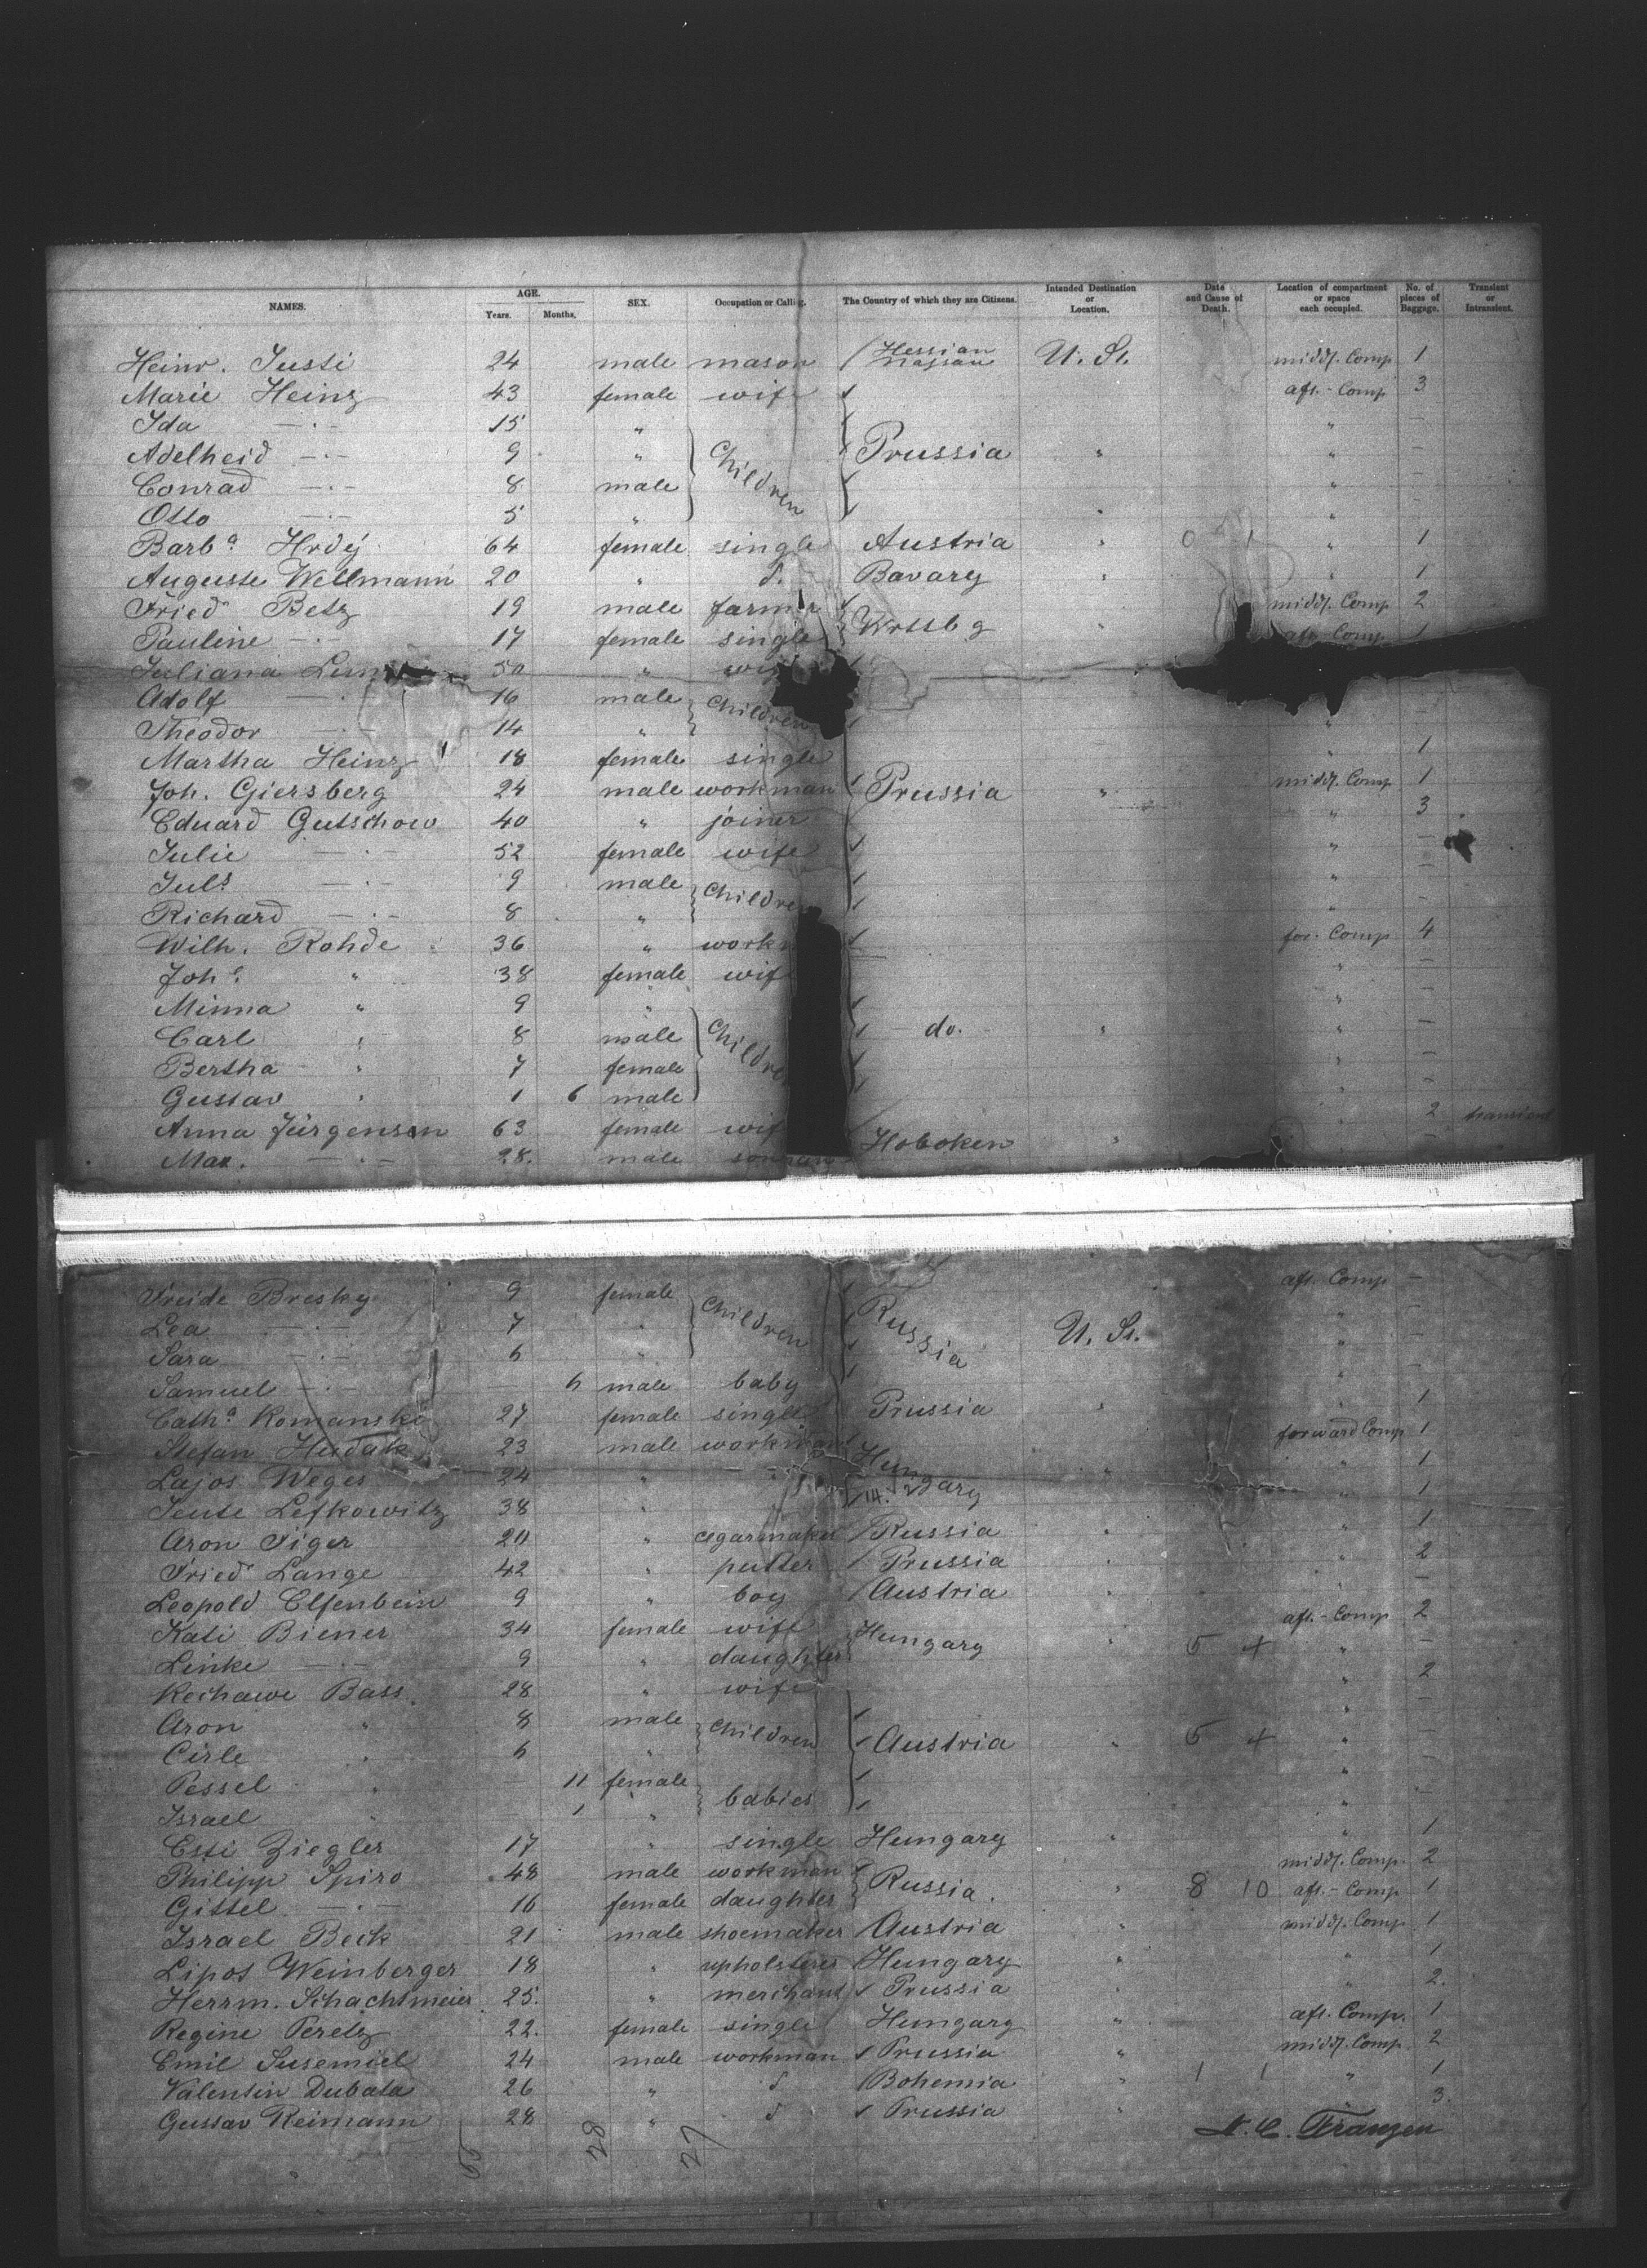 NAMES. AGE. Years. Months. SEX. Occupation or Calling. The Country of which they are Citizens. Intended Destination or Location. Date and Cause of Death. Location of compartment or space each occupied. No. of pieces of Baggage. Transient or Intransient.
Heinr. Justi 24 male mason Hessian Nassau U. St. middl. Comp 1
Marie Heinz 43 female wife aft.-Comp 3
Ida —·— 15 " " —
Adelheid —·— 9 " Children Prussia " " —
Conrad —·— 8 male " —
Otto —·— 5 " " "
Barbª Hrdý 64 female single Austria " 0 1 " 1
Auguste Wellmann 20 " d. Bavary " " 1
Friedr Betz 19 male farmer middl. Comp 2
Pauline —·— 17 female single Wrttbg " aft. Comp 1
Juliana 50 " wife
Adolf — 16 male Children —
Theodor — 14 " " —
Martha Heinz 18 female single " 1
Joh. Giersberg 24 male workman Prussia " middl. Comp 1
Eduard Gutschow 40 " joiner " 3
Julie —·— 52 female wife " —
Juls —·— 9 male Children " —
Richard —·— 8 " "
Wilh. Rohde 36 " work for. Comp 4
Joh " 38 female wif " —
Minna " 9 " " —
Carl " 8 male Children do. " " —
Bertha " 7 female " —
Gustav " 1 6 male " —
Anna Jürgensen 63 female wif Hoboken " " 2 transient
Max. —·— 28. male —
Freide Bresky 9 female aft. Comp —
Lea —·— 7 " Children Russia U. St. " —
Sara —·— 6 " " —
Samuel —·— 6 male baby " —
Cathª Romanski 27 female single Prussia " " 1
Stefan Hudak 23 male workman forward Comp 1
Lajos Weges 24 " " Hungary " " 1
Jente Lefkowitz 38 " " 1
Aron Tiger 20 " cigarmaker Russia " " 1
Friedr Lange 42 " putter Prussia " " 2
Leopold Elfenbein 9 " boy Austria " " —
Kati Biener 34 female wife Hungary " aft.-Comp 2
Linke —·— 9 " daughter 5 4 " —
Rechawe Bass 28 " wife " 2
Aron " 8 male Children " —
Cirle " 6 " Austria " 5 4 " —
Pessel " 11 female babies " —
Israel " 1 " " —
Esti Ziegler 17 " single Hungary " " 1
Philipp Spiro 48 male workman Russia. middl. Comp. 2
Gittel —·— 16 female daughter " 8 10 aft.-Comp 1
Israel Beck 21 male shoemaker Austria " middl. Comp 1
Lipos Weinberger 18 " upholsterer Hungary " " 1
Herrm. Schachtmeier 25. " merchant Prussia " " 2.
Regine Peretz 22. female single Hungary " aft. Comp. 1
Emil Susemiel 24 male workman Prussia " middl. Comp 2
Valentin Dubata 26 " d Bohemia " 1 1 " 1
Gustav Reimann 28 " d Prussia " 3.
Franzen
55 28 27